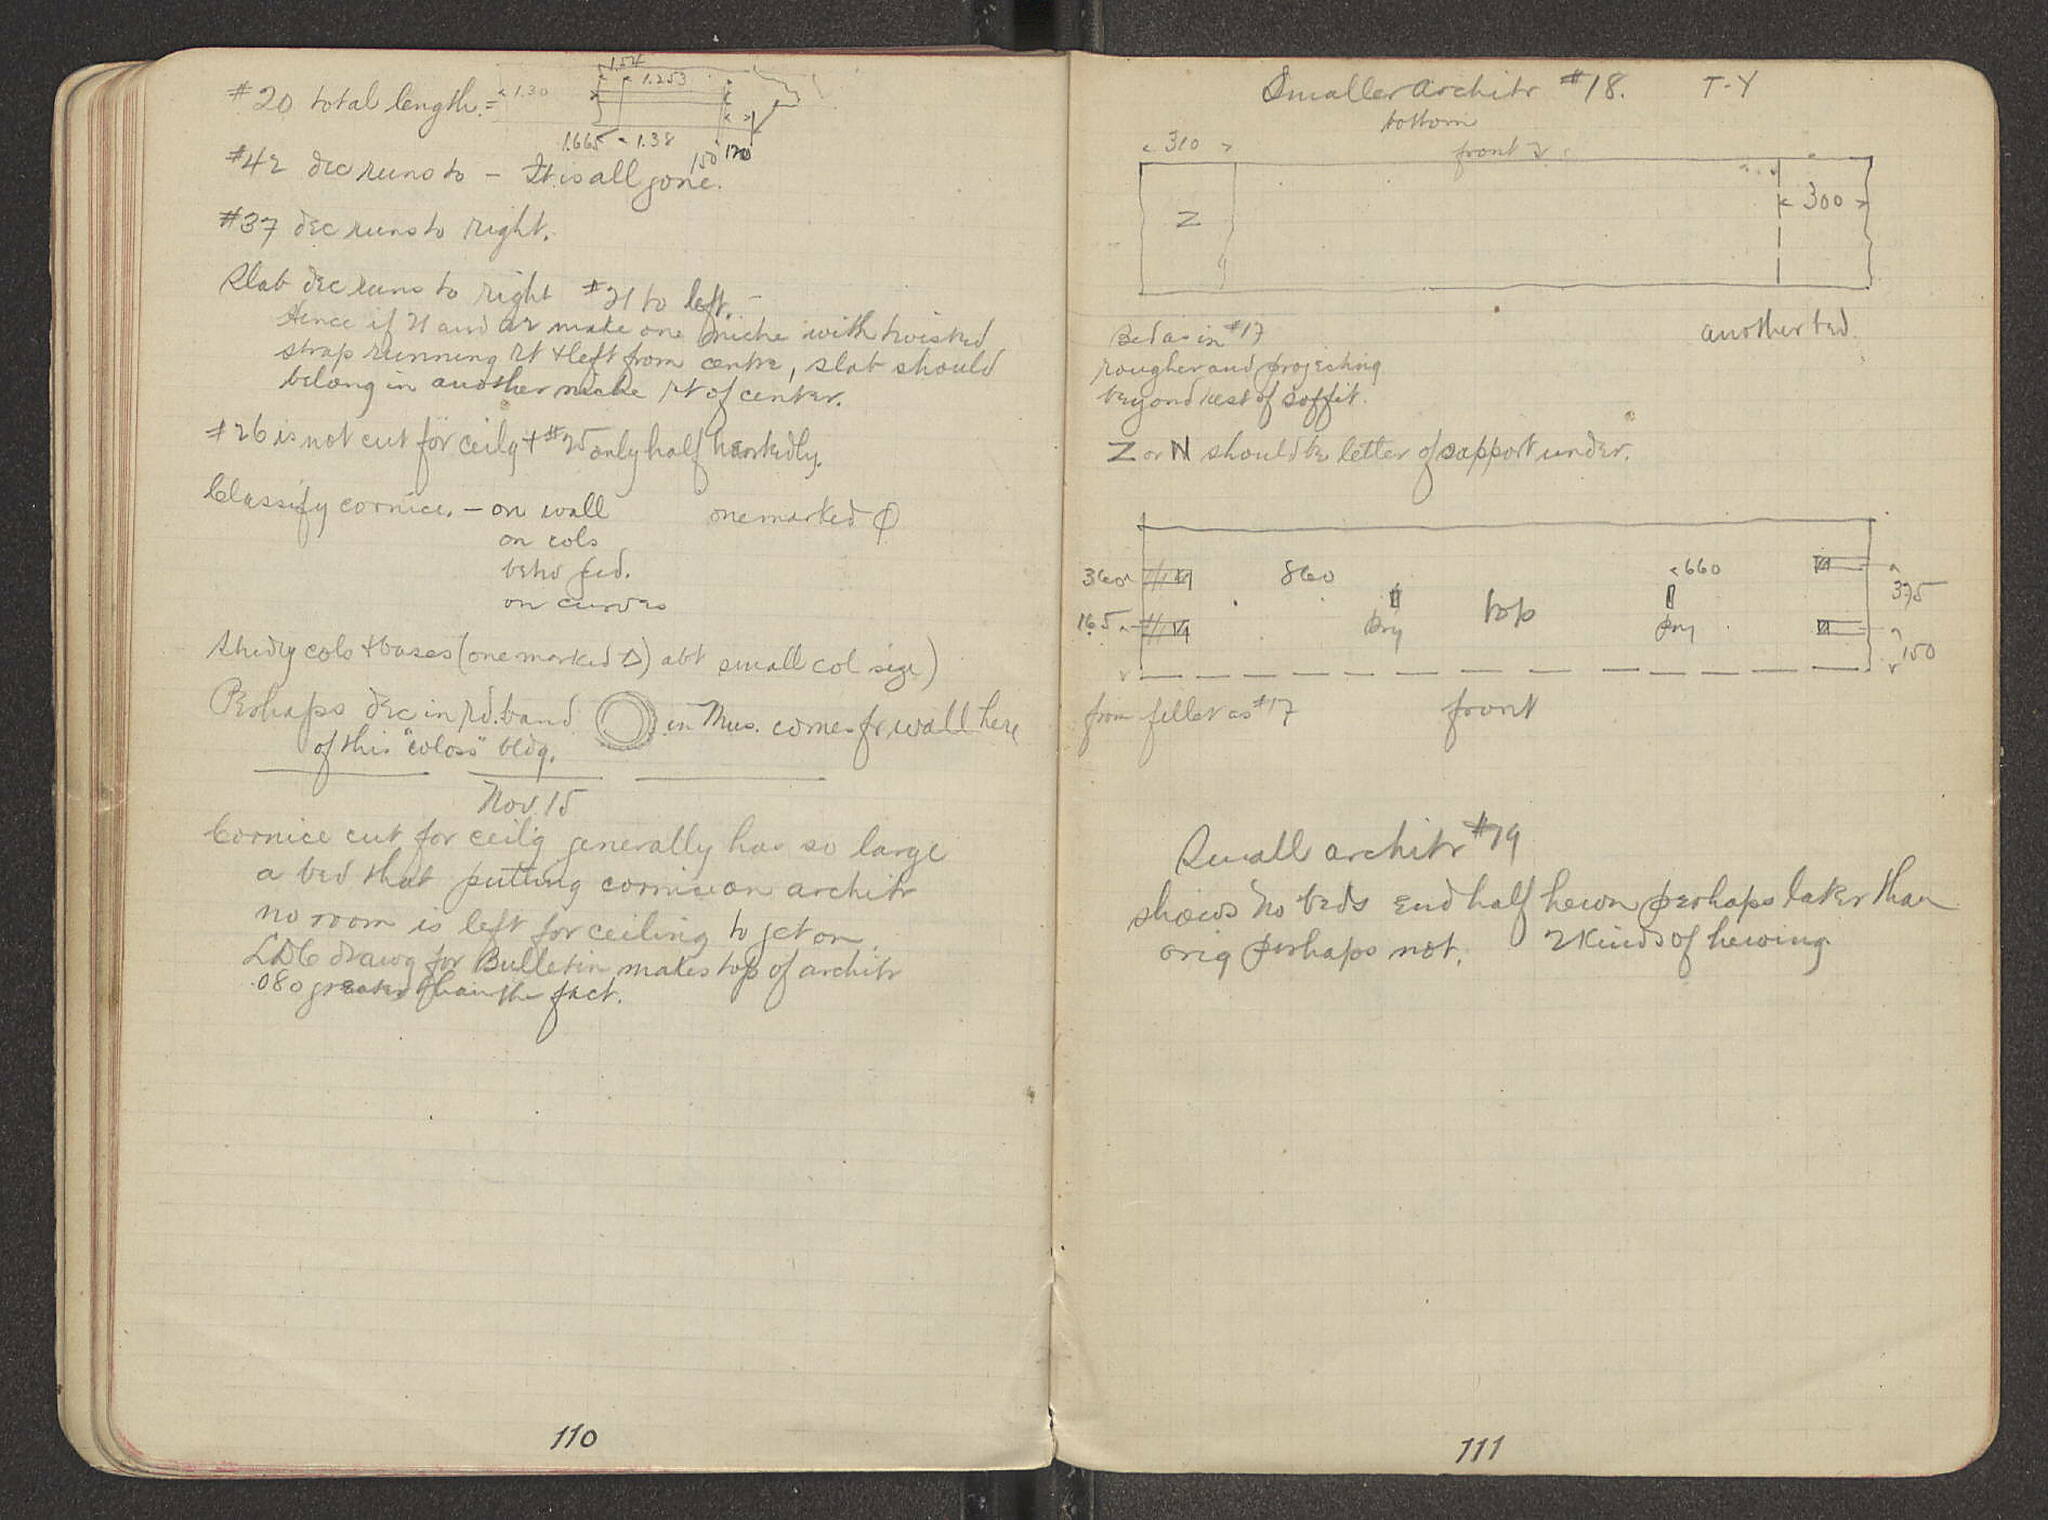 #20 total length =
1.30
1.54
1.253
1.665 - 1.38
150 120
#42 dec runs to - It is all gone.
#37 dec runs to right.
Slab dec runs to right #21 to left. -
Hence if 21 and 22 make one niche with twisted
strap running rt + left from centre, slab should
belong in another niche rt of center.
#26 is not cut for ceilg + #25 only half
Classify cornice. - on wall one marked φ
on cols
betw fed.
on curves
Study cols + bases (one marked Δ) abt small col size)
Perhaps dec in rd. band in Mus. comes fr wall here
of this "coloss" bldg.
Nov. 15
Cornice cut for ceil'g generally has so large
a bed that putting cornice on architr
no room is left for ceiling to get on.
LDC drawg for Bulletin makes top of architr
.080 greater than the fact.
110
Smaller architr #18. T-Y
bottom
310
front
Z
300
another bed
Bed as in #17
rougher and projecting
beyond rest of soffit.
Z or N should be letter of support under.
360
860
660
375
165
pry
top
pry
150
from fillet as #17
front
Small architr #19
shows no beds end half hewn perhaps later than
orig perhaps not. 2 kinds of hewing.
111